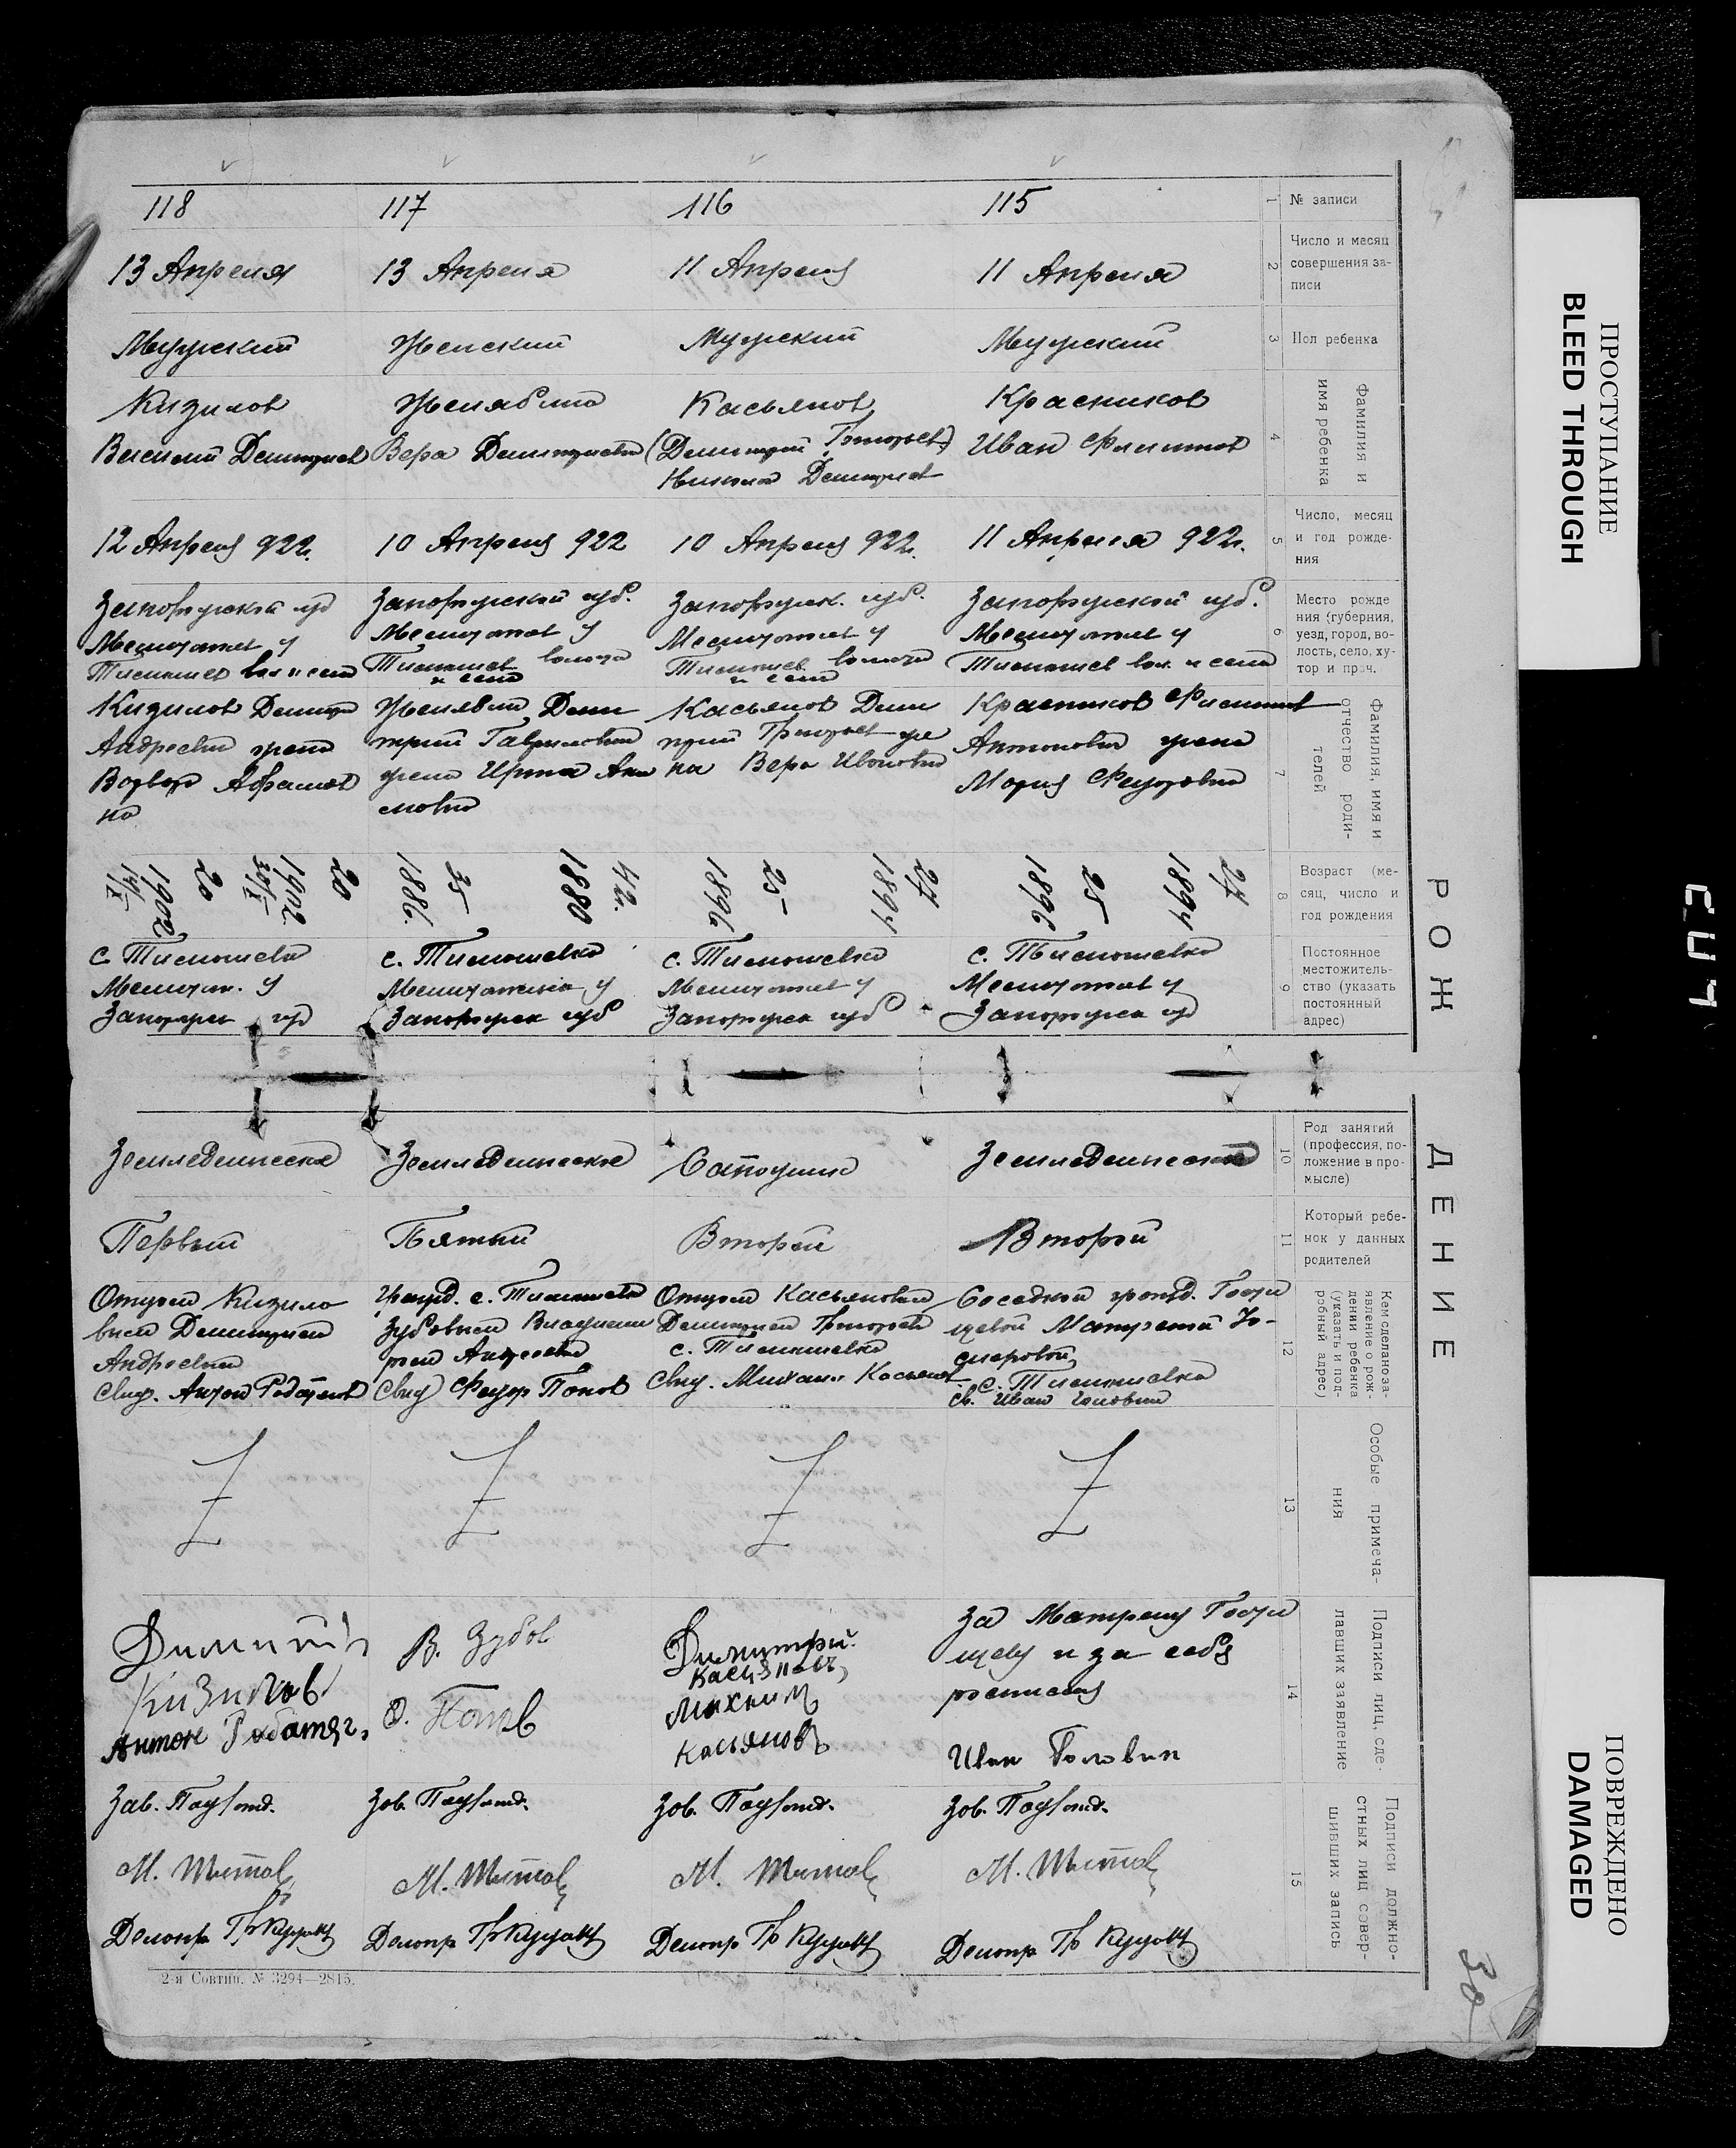 РОЖДЕНИЕ
1
№ записи
115
116
117
118
2
Число и месяц
совершения за-
писи
11 Апреля
11 Апреля
13 Апреля
13 Апреля
3
Пол ребенка
Мужский
Мужский
Женский
Мужский
4
Фамилия и
имя ребенка
Красников
Иван Филиппов
Касьянов
(Димитрий Григорьев)
Никола Димитриев
Женябина
Вера Димитриевна
Кизилов
Василий Димитриев
5
Число, месяц
и год рожде-
ния
11 Апреля 922г.
10 Апреля 922г.
10 Апреля 922
12 Апреля 922г.
6
Место рожде
ния (губерния,
уезд, город, во-
лость, село, ху-
тор и проч.
Запорожской губ.
Мелитопол у
Тимошев вол. и села
Запорожск. губ.
Мелитопол у
Тимошев. волости
и села
Запорожской губ.
Мелитопол у
Тимошев волости
и села
Запорожской губ
Мелитопол у
Тимошев вол и села
7
Фамилия, имя и
отчество роди-
телей
Красников Филипп
Антонович жена
Мария Федоровна
Касьянов Дими
трий Григорьев же
на Вера Ивановна
Дими
трий Гаврилович
жена Ирина Аки
мовна
Кизилов Димитр
Андреевич жена
Варвар
на
8
Возраст (ме-
сяц, число и
год рождения
27
1894
25
1896
27
1894
25
1896
42.
1880
35
1886.
20
1902
20
1902
9
Постоянное
местожитель-
ство (указать
постоянный
адрес)
с. Тимошевка
Мелитопол у
Запорожск гу
с. Тимошевка
Мелитопол у
Запорожск губ
с. Тимошевка
Мелитопольск у
Запорожск губ
с. Тимошевка
Мелитоп. у
Запорожск гу
10
Род занятий
(профессия, по-
ложение в про-
мысле)
Земледельческий
Сапожник
Земледельческое
Земледельческое
11
Который ребе-
нок у данных
родителей
Второй
Второй
Пятый
Первый
12
Кем сделано за-
явление о рож-
дении ребенка
(указать и под-
робный адрес)
Соседкой гражд.
Матреной
с. Тимошевка
св. Иван Головин
Отцом Касьяновым
Димитрием Григорьев
с. Тимошевка
Свид. Михаил Касьянов
Гражд. с. Тимошевка
Зубовым Владими
ром Андреевич
Свид Федор Попов
Отцом Кизило
вым Димитрием
Андреевич
Свид. Антон
13
Особые примеча-
ния
14
Подписи лиц, сде-
лавших заявление
За Матрену
и за себя
росписался
Иван Головин
Димитрий
Касьянов
Михаил
Касьянов
В. Зубов
Ф. Попов
Димитрий
Кизилов
Антон
15
Подписи должно-
стных лиц совер-
шивших запись
Зав. Подотд.
М. Шитов
Делопр Гр
Зав. Подотд.
М. Шитов
Делопр Гр
Зав. Подотд.
М. Шитов
Делопр Гр
Зав. Подотд.
М. Шитов
Делопр Гр
2-я Совтип. № 3294—2815.
38
ПРОСТУПАНИЕ
BLEED THROUGH
ПОВРЕЖДЕНО
DAMAGED